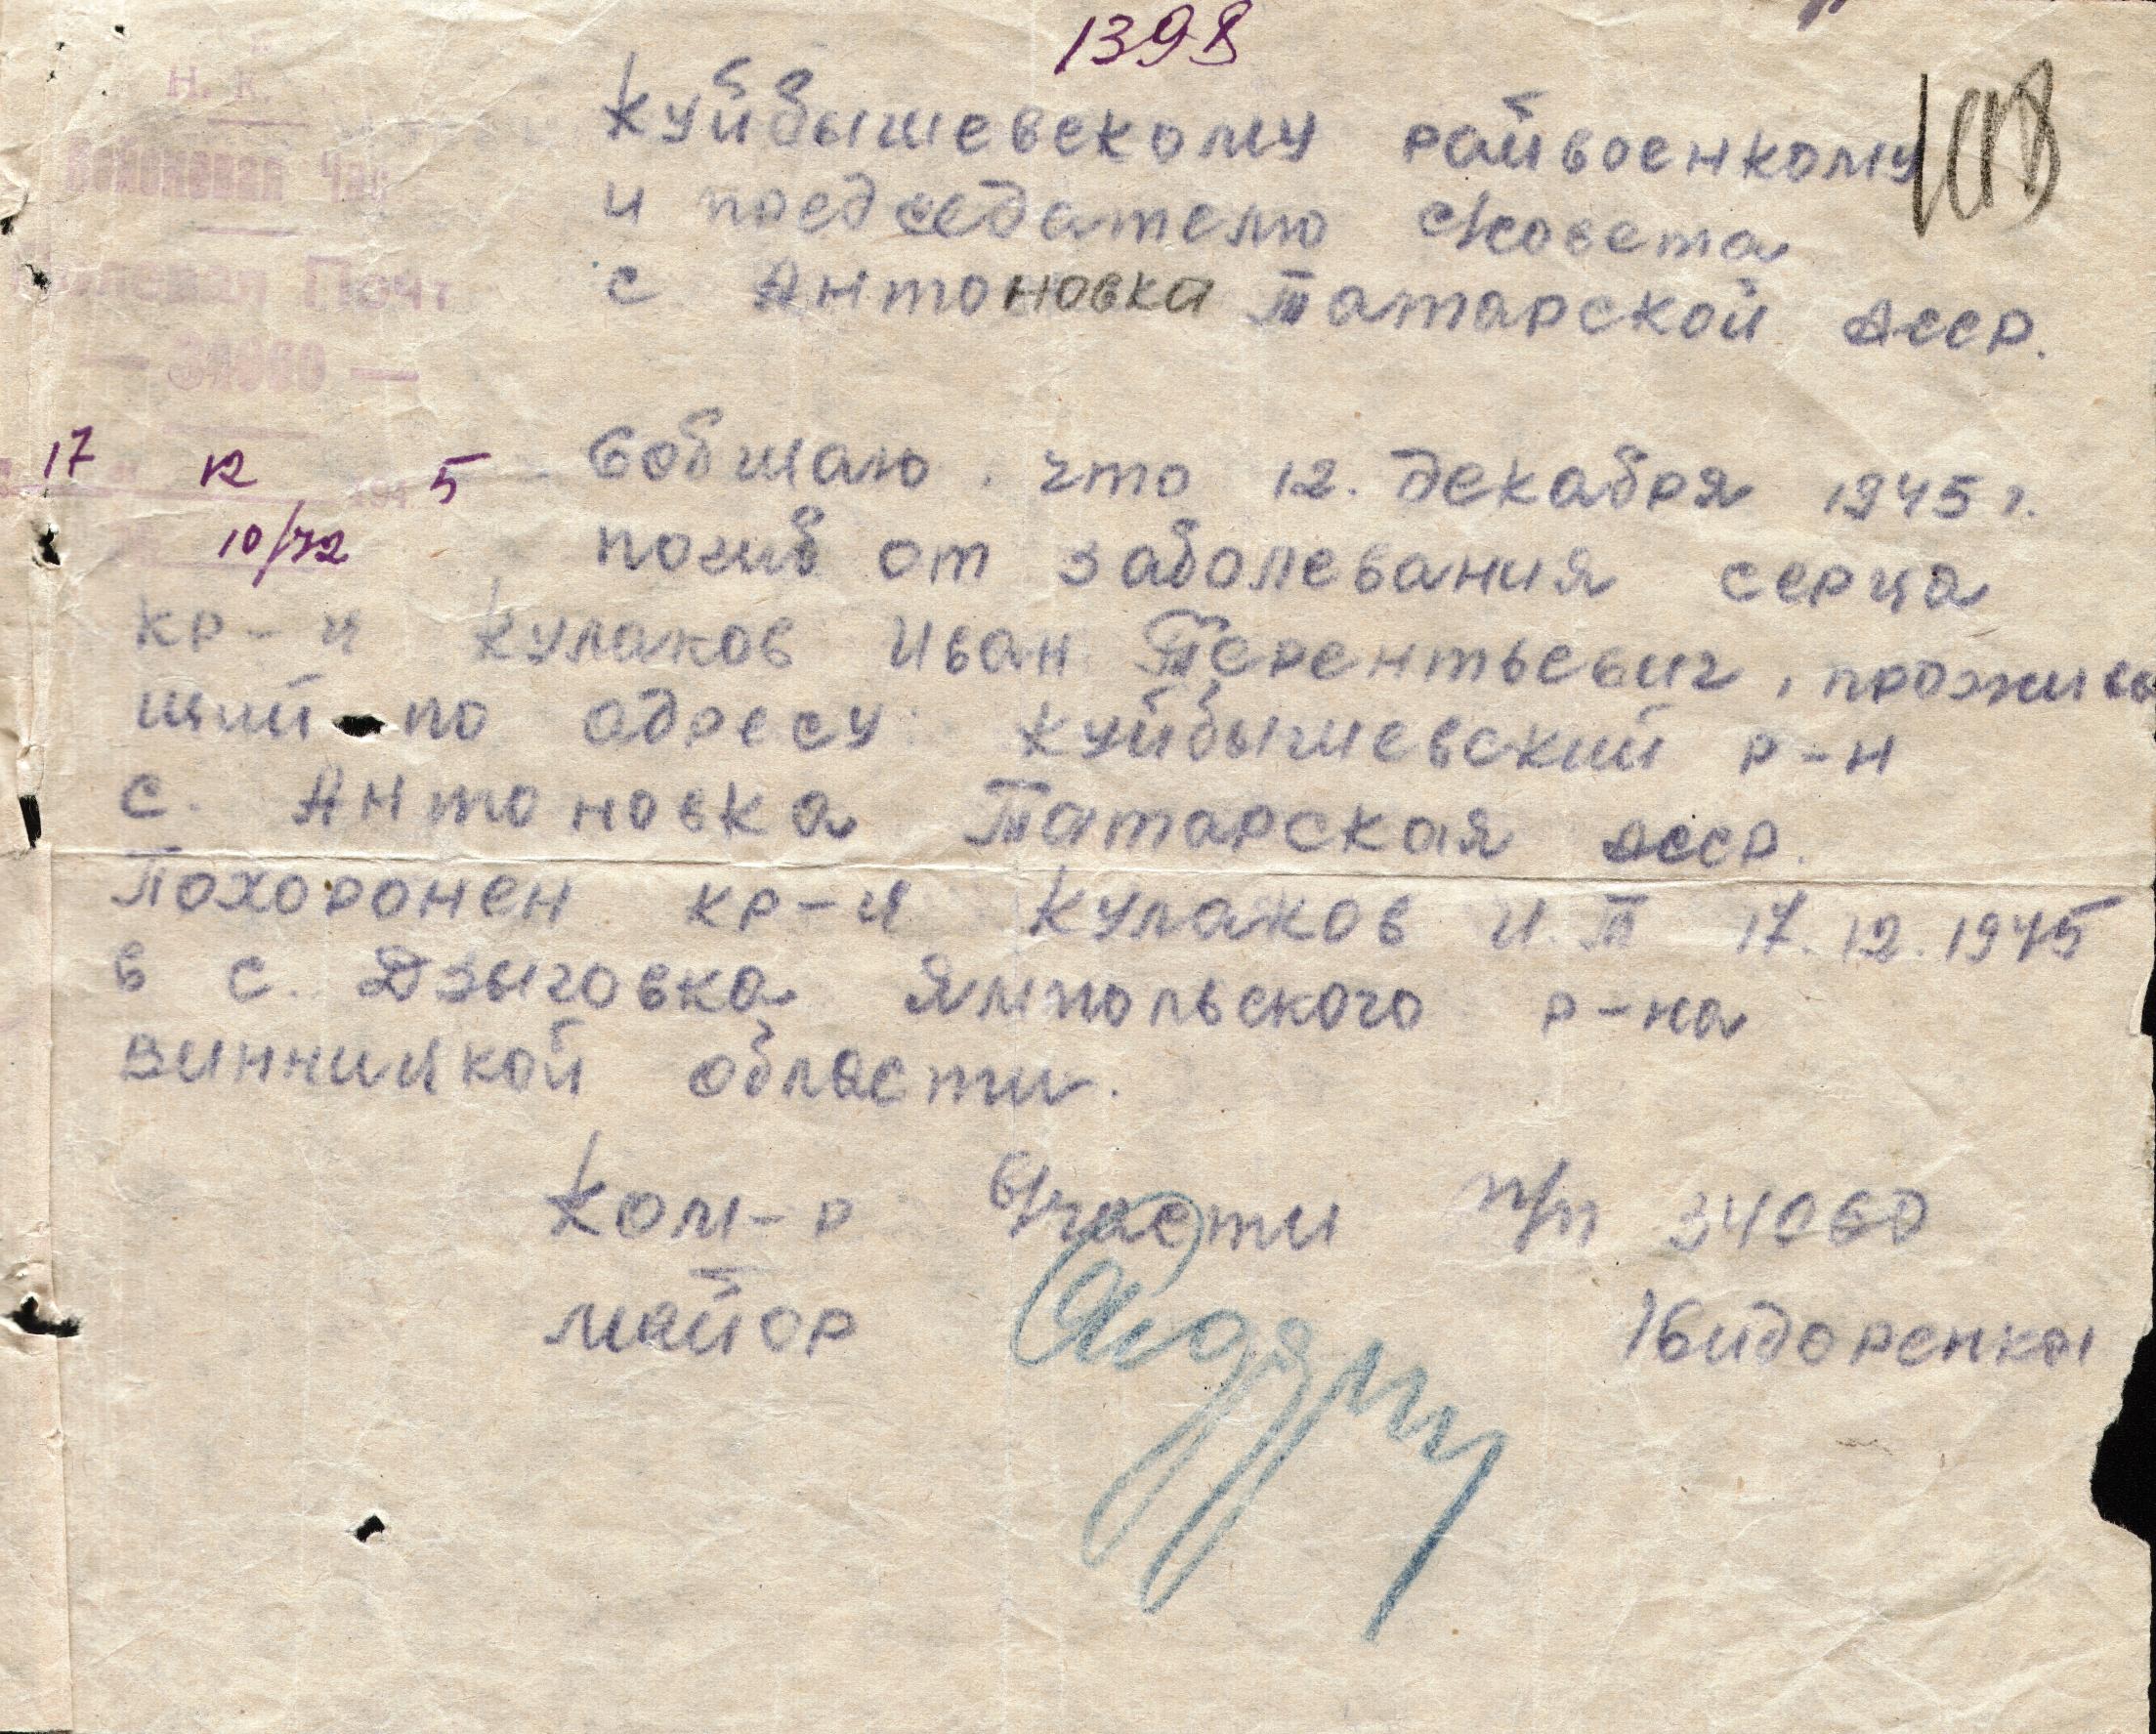 1398
Н. К.
Войсковая Час
Полевая Почт
17 12 194 5
10/72
Куйбышевскому райвоенкому
и председателю с/совета
с Антоновка Татарской АССР.
Собщаю, что 12. декабря 1945 г.
погиб от заболевания серца
кр-ц Кулаков Иван Терентьевич, прожив
щий по адресу: Куйбышевский р-н
с. Антоновка Татарская АССР.
Похоронен кр-ц Кулаков И.Т 17.12.1945
в с. Дзыговка Ямпольского р-на
Винницкой области.
Ком-р в/части п/п 34060
майор /Сидоренко/